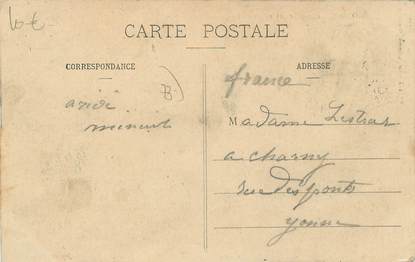 10€
CARTE POSTALE
CORRESPONDANCE
ADRESSE
B
france
Madame Lestrat
a charny
rue des ponts
yonne